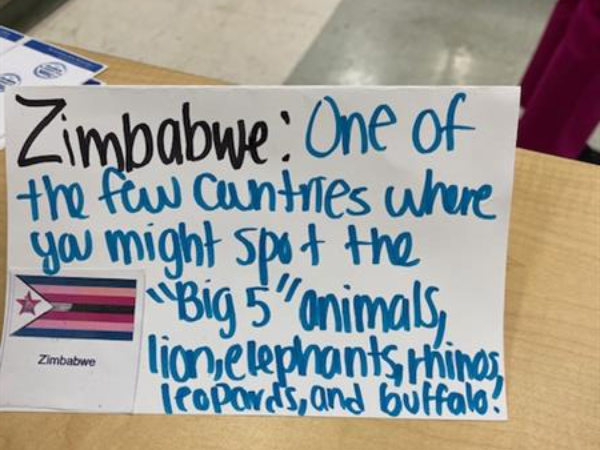 Zimbabwe: One of
the few Cuntries where
you might spot the
"Big 5" animals,
lion, elephants, rhinos,
leopards, and buffalo!
Zimbabwe